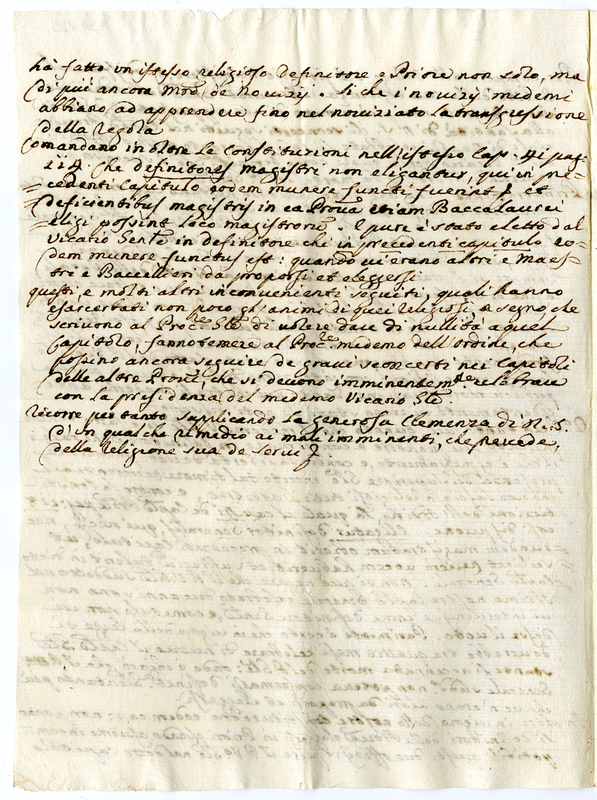 ha fatto un istesso religioso Definitore e Priore non solo, ma
di più ancora Mro de Novizij. Si che i novizij medemi
abbiano ad apprendere fino nel noviziato la transgressione
della regola
Comandano in oltre le constitutioni nell'istesso Cap. 4i pag.
114. che definitores magistri non eligantur, qui in pre=
=cedenti capitulo eodem munere functi fuerint et
deficientibus magistris in ea Prova etiam Baccalaurei
=eligi possint loco magistroru. E pure è stato eletto dal
Vicario Genle in definitore chi in precedenti capitulo eo=
dem munere functus est: quando vi erano altri e Maes=
tri e Baccellieri da proporsi et eleggersi
questi, e molti altri inconvenienti seguiti, quali hanno
esacerbati non poco gl'animi di quei religiosi, a segno, che
scrivono al Procre Gle di volere dare di nullità a quel
capitolo, fanno temere al Procre medemo dell'ordine, che
possino ancora seguire de gravi sconcerti nei capitoli
delle altre Provle, che si devono imminentemte celebrare
con la presidenza del medemo Vicario Gle.
ricorre pertanto supplicando la generosa Clemenza di N. S.
d'un qualche rimedio ai mali imminenti, che prevede,
della religione sua de Servi